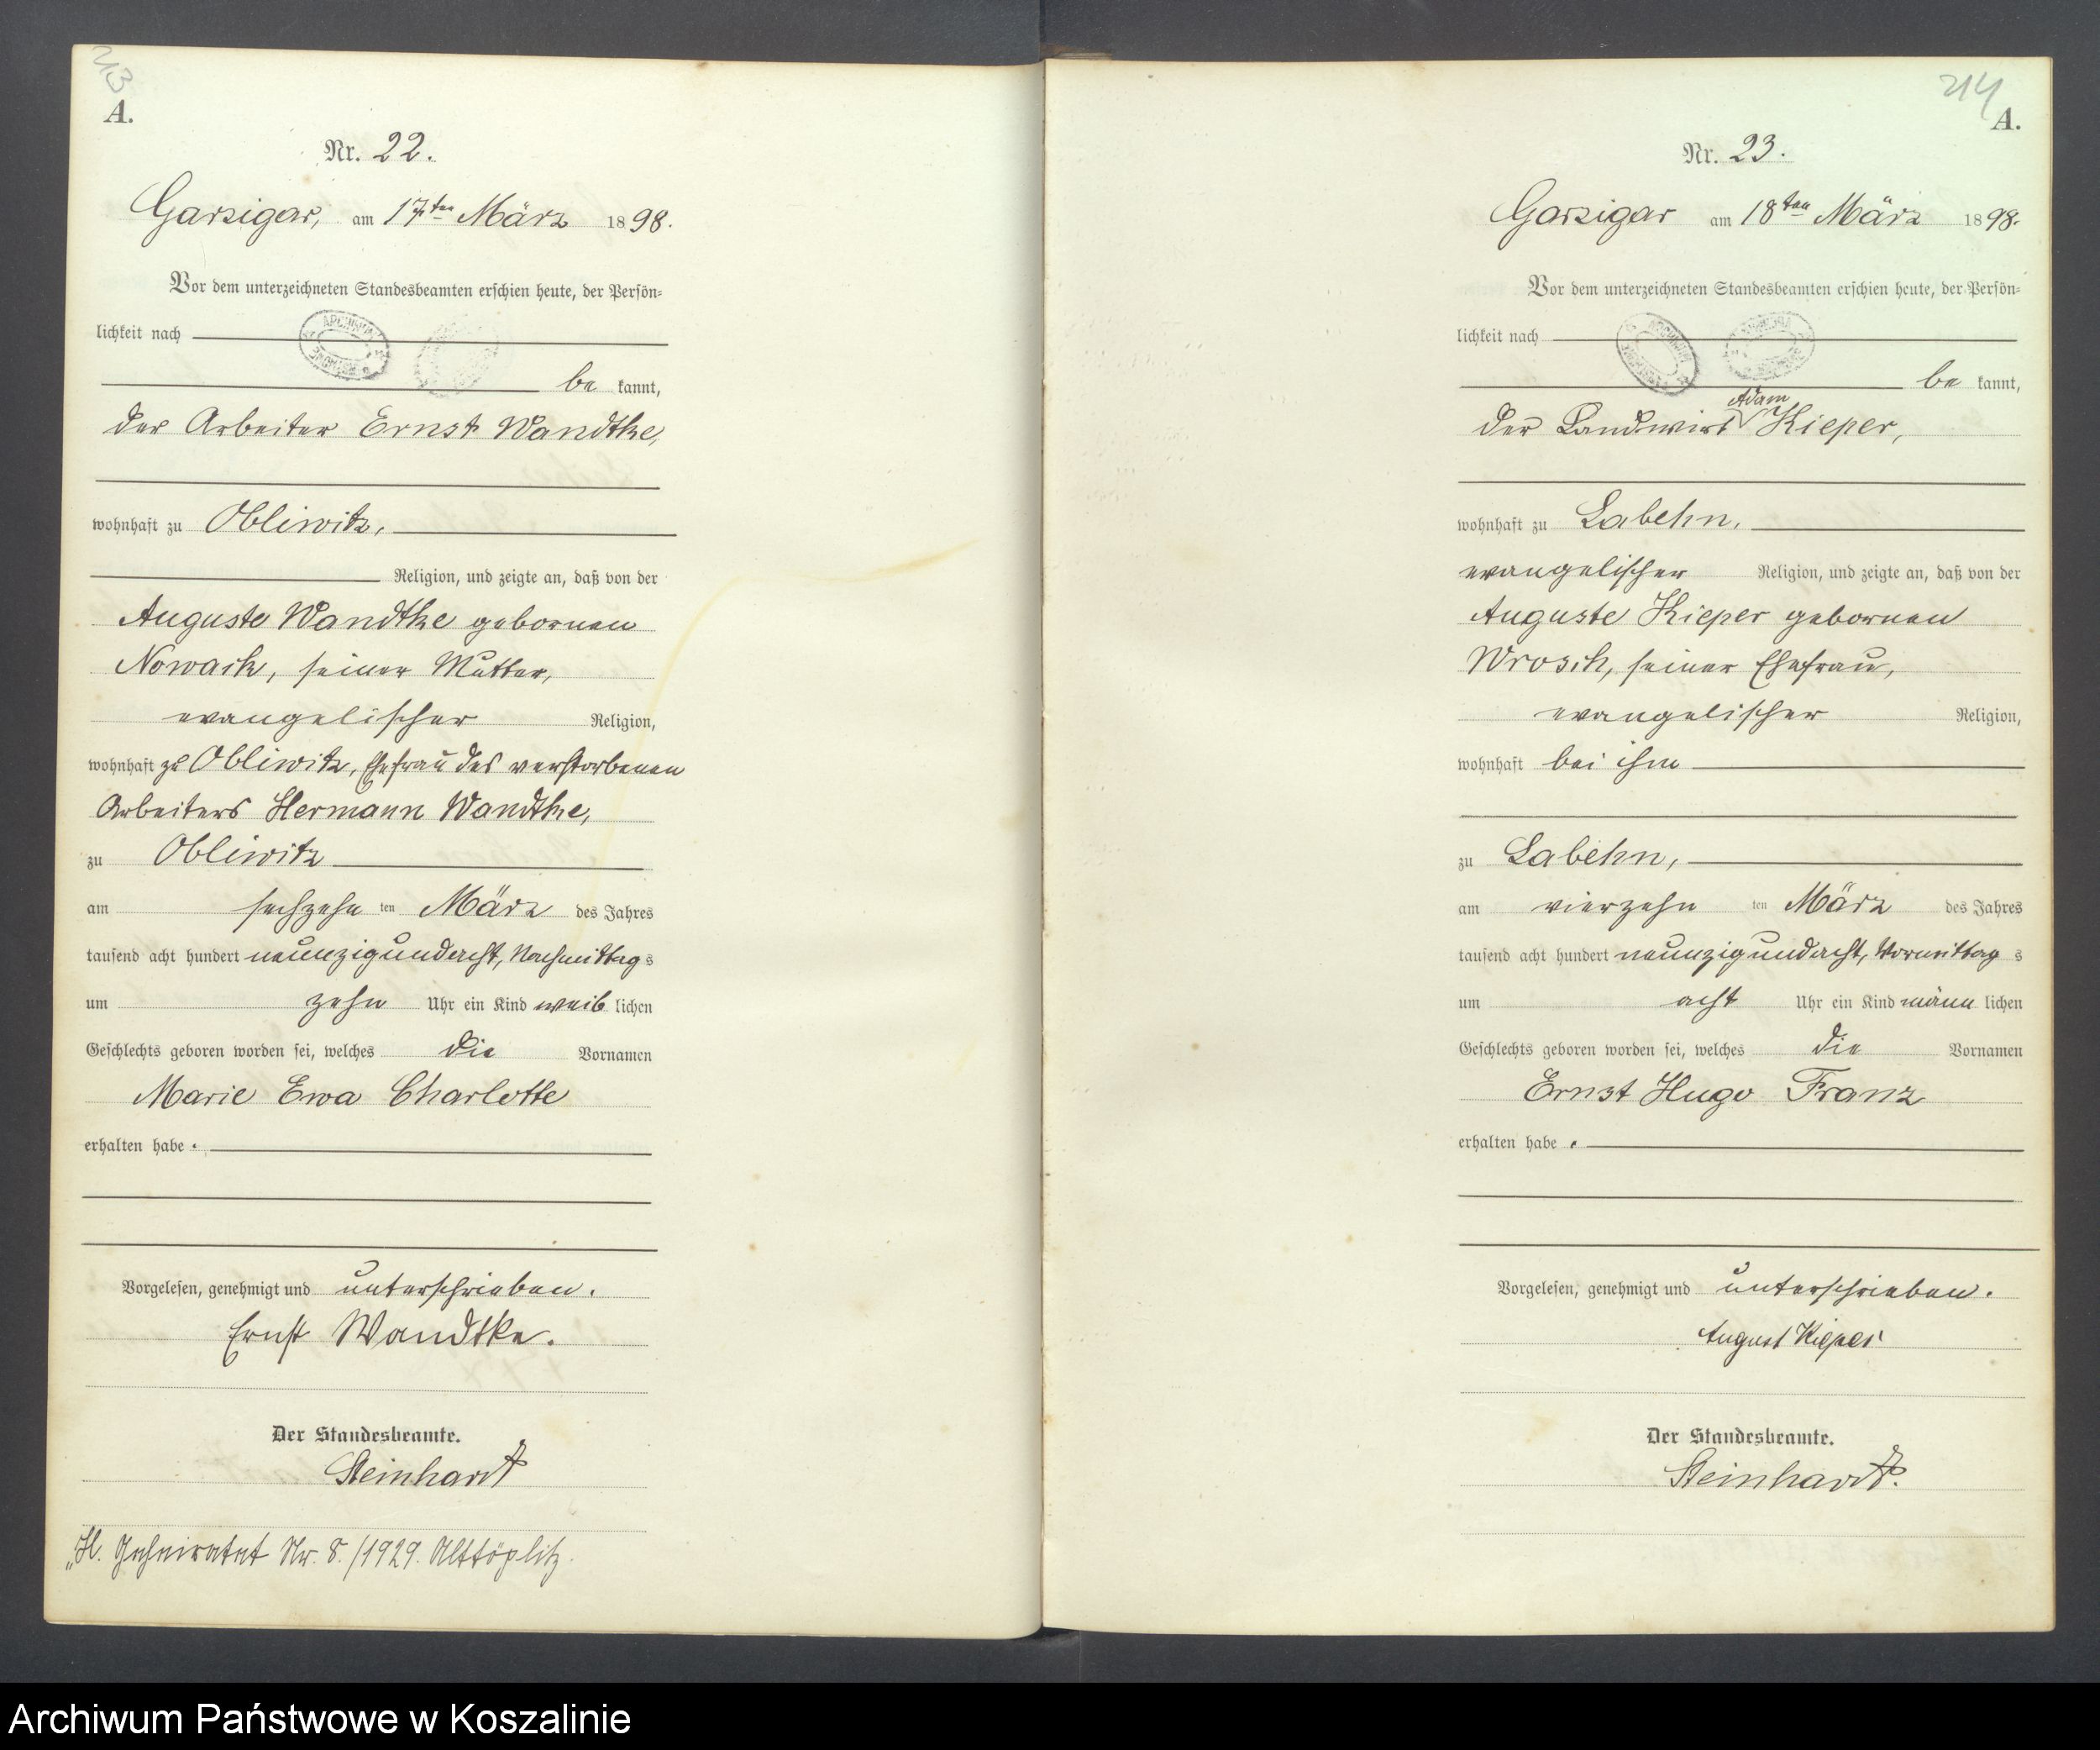 213
A.
Nr. 22.
Garzigar, am 17ten März 1898.
Vor dem unterzeichneten Standesbeamten erschien heute, der Persön-
lichkeit nach
be kannt,
der Arbeiter Ernst Wandtke,
wohnhaft zu Obliwitz,
Religion, und zeigte an, daß von der
Auguste Wandtke gebornen
Nowack, seiner Mutter,
evangelischer Religion,
wohnhaft zu Obliwitz, Ehefrau des verstorbenen
Arbeiters Hermann Wandtke,
zu Obliwitz
am sechzehn ten März des Jahres
tausend acht hundert neunzigundacht, Nachmittag s
um zehn Uhr ein Kind weib lichen
Geschlechts geboren worden sei, welches die Vornamen
Marie Ewa Charlotte
erhalten habe.
Vorgelesen, genehmigt und unterschrieben.
Ernst Wandtke.
Der Standesbeamte.
Steinhardt
"H. Geheiratet Nr. 8./1929. Alttöplitz.
214
A.
Nr. 23.
Garzigar am 18ten März 1898.
Vor dem unterzeichneten Standesbeamten erschien heute, der Persön-
lichkeit nach
be kannt,
Adam
der Landwirt Kieper,
wohnhaft zu Labehn,
evangelischer Religion, und zeigte an, daß von der
Auguste Kieper gebornen
Wrosch, seiner Ehefrau,
evangelischer Religion,
wohnhaft bei ihm
zu Labehn,
am vierzehn ten März des Jahres
tausend acht hundert neunzigundacht, Vormittag s
um acht Uhr ein Kind männ lichen
Geschlechts geboren worden sei, welches die Vornamen
Ernst Hugo Franz
erhalten habe.
Vorgelesen, genehmigt und unterschrieben.
August Kieper
Der Standesbeamte.
Steinhardt.
Archiwum Państwowe w Koszalinie